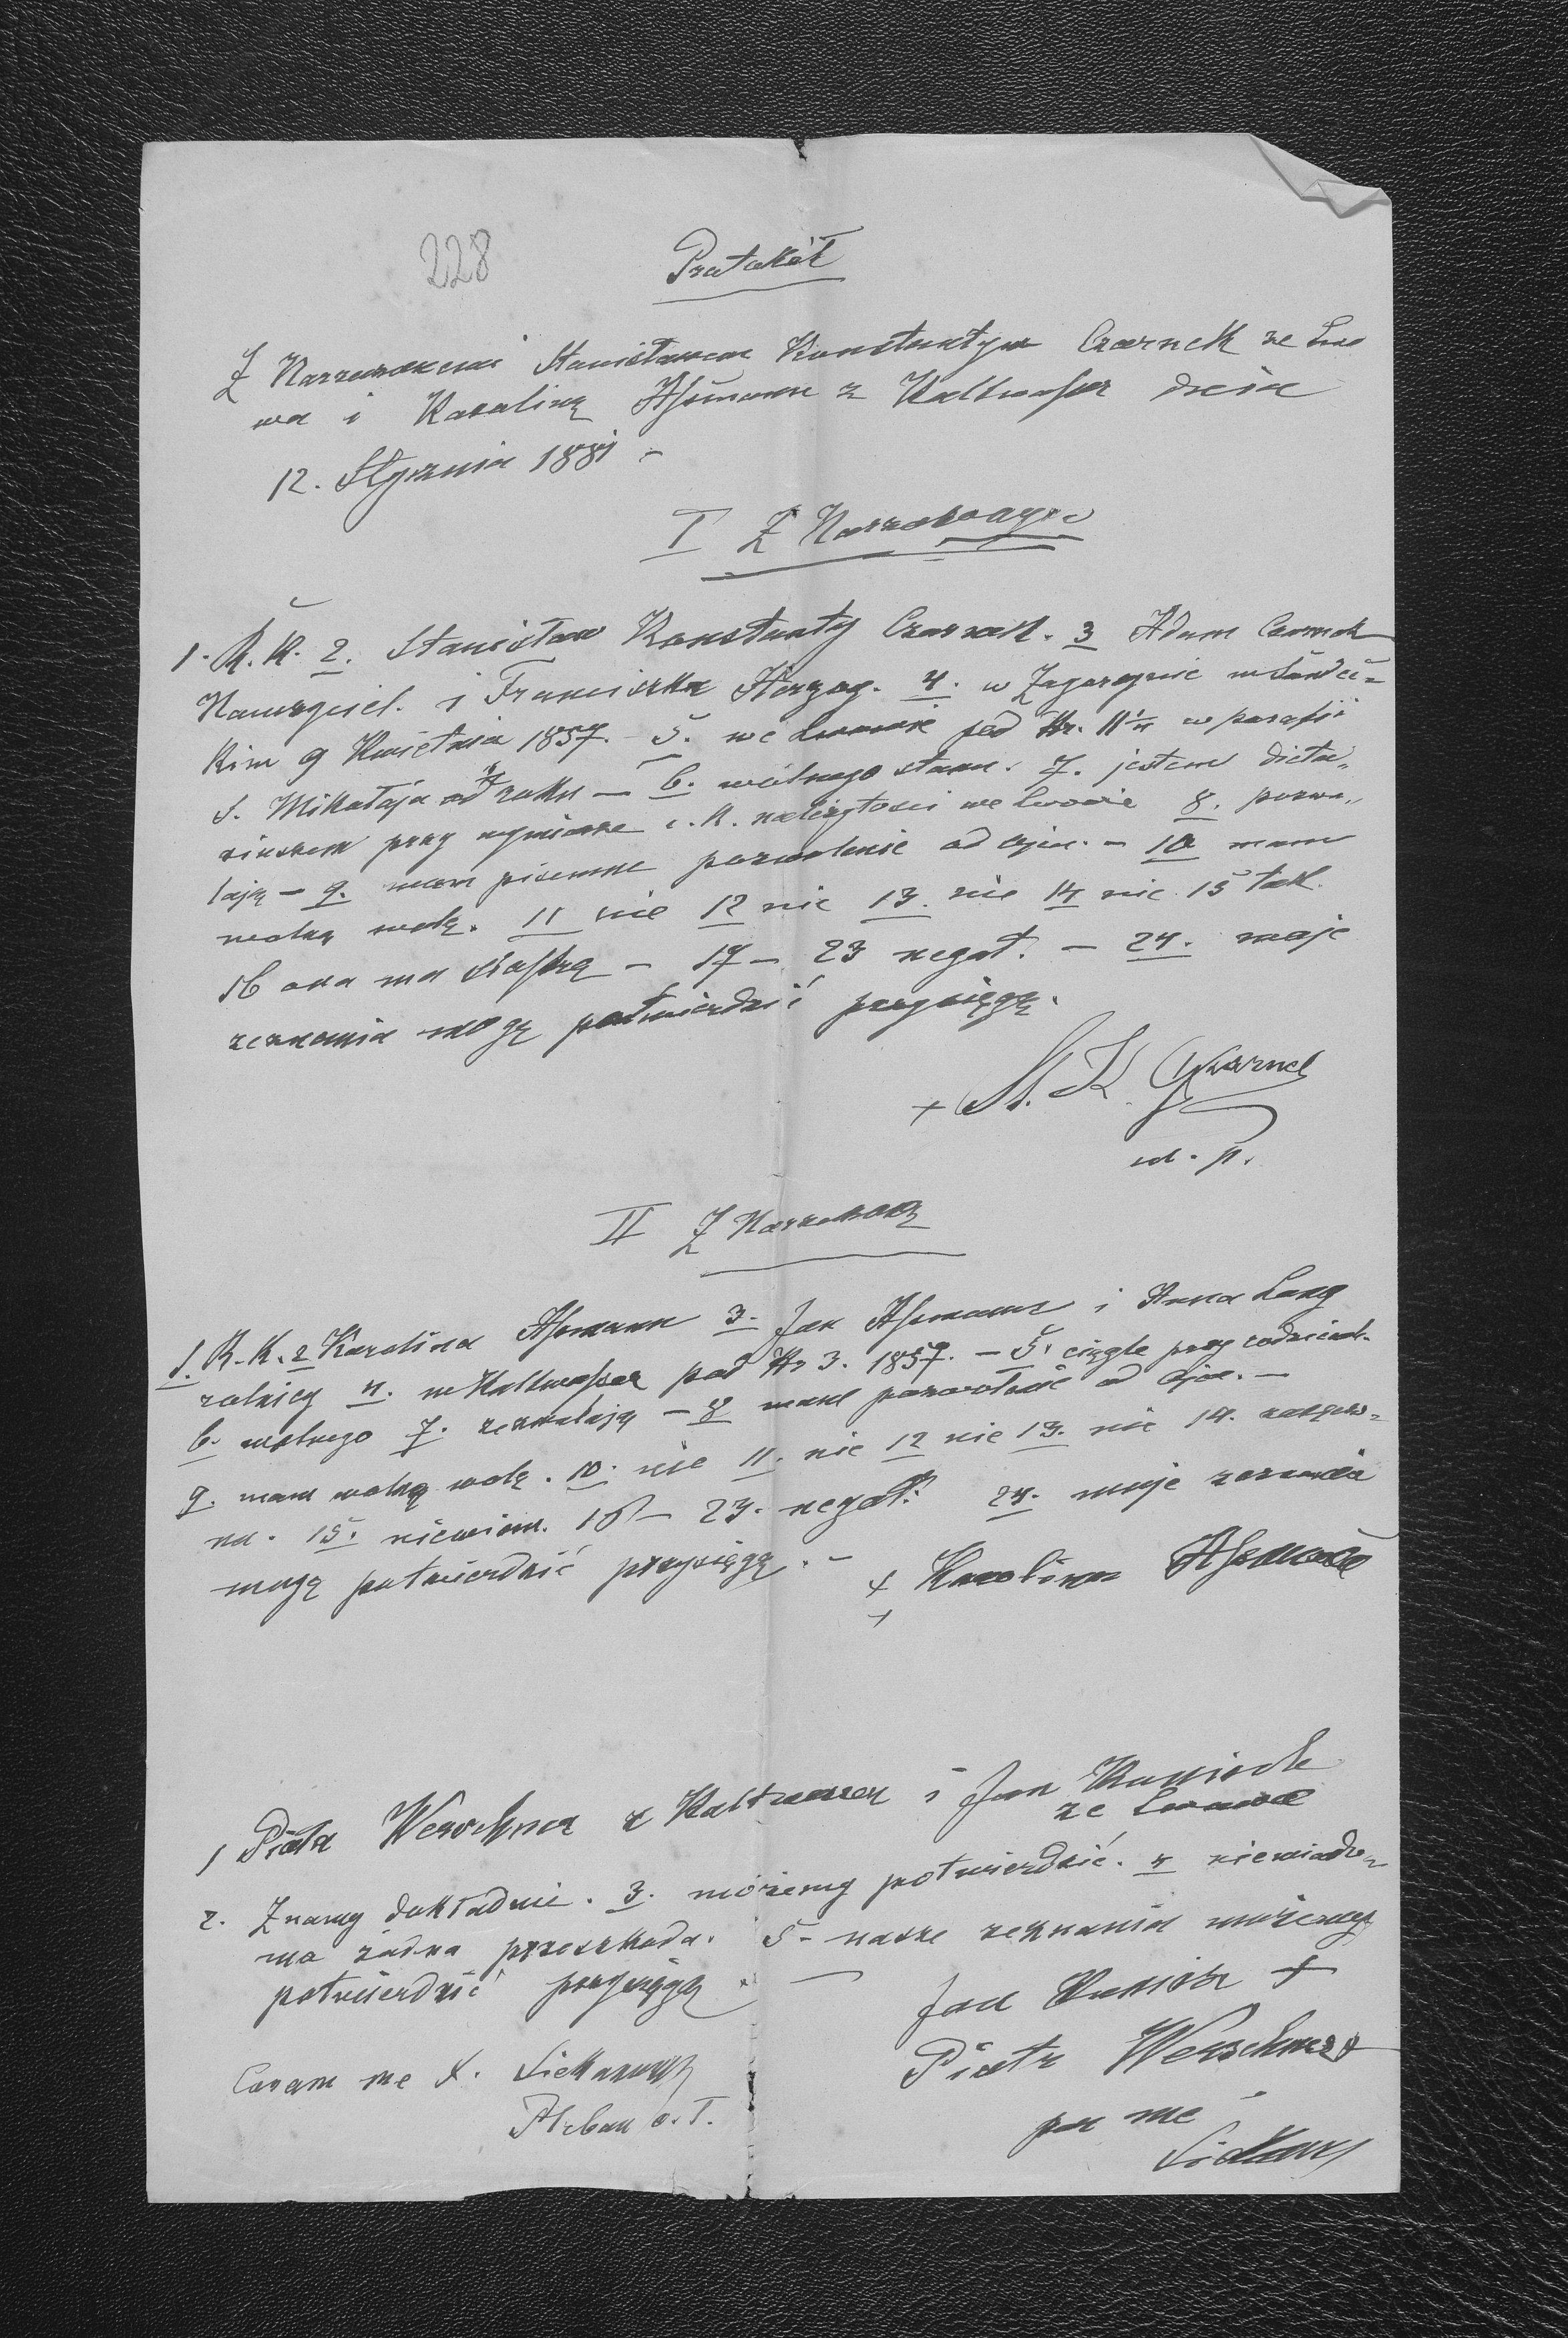 228
Protokół
Z Narzeczonemi Stanisławem Konstantym Czarnek ze Lwo
wa i Karoliną Aßmann z Kaltwaßer dnia
12. Stycznia 1881 -
I Z Narzeczonym
1. R. K. 2. Stanisław Konstanty Czarnek. 3 Adam Czarnek
Nauczyciel. i Franciszka Herzog. 4. w Zagorzynie w Sandec=
kim 9 Kwietnia 1857. - 5. we Lwowie pod Nr. 11 w parafii
S. Mikołaja od roku - 6. wolnego stanu. 7. jestem dieta„
riuszem przy wymiarze c. k. należytości we Lwowie 8. pozwa„
lają - 9. mam pisemne pozwolenie od ojca. - 10 mam
wolną wolę. 11 nie 12 nie 13. nie 14 nie 15 tak.
16 ona ma siostrę - 17 - 23 negat. - 24. moje
zeznania mogę potwierdzić przysięgą.
+ St. K. Czarnek
II Z Narzeczoną
1. R. K. 2 Karolina Aßmann 3. Jan Aßmann i Anna Lang
rolnicy 4. w Kaltwaßer pod Nr 3. 1857. - 5. ciągle przy rodzicach.
6. wolnego 7. zezwalają - 8 mam pozwolenie od ojca. -
9. mam wolną wolę. 10. nie 11. nie 12 nie 13. nie 14.
na. 15. niewiem. 16 - 23. negat. 24. moje zeznania
mogę potwierdzić przysięgą. -
+ Karolina Aßmann
+
1 Piotr Werschner z Kaltwasser i Jan
ze Lwowa
2. Znamy dokładnie. 3. możemy potwierdzić. 4 niewiado=
ma żadna przeszkoda. 5 - nasze zeznania możemy
potwierdzić przysięgą. -
Jan +
Piotr Werschner +
Coram me X.
Pleban o. ł.
per me